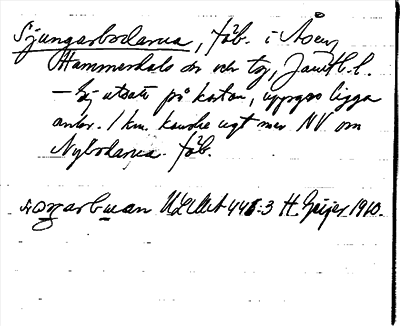 Sjungarbodarna, fäb. i Åsen,
Hammerdals sn och tg, Jämtl. l.
— Ej utsatt på kartan, uppges ligga
1 km. kanske ngt mer NV om
Nybodarna. fäb.
ULMA 446:3 H. Geijer 1910.